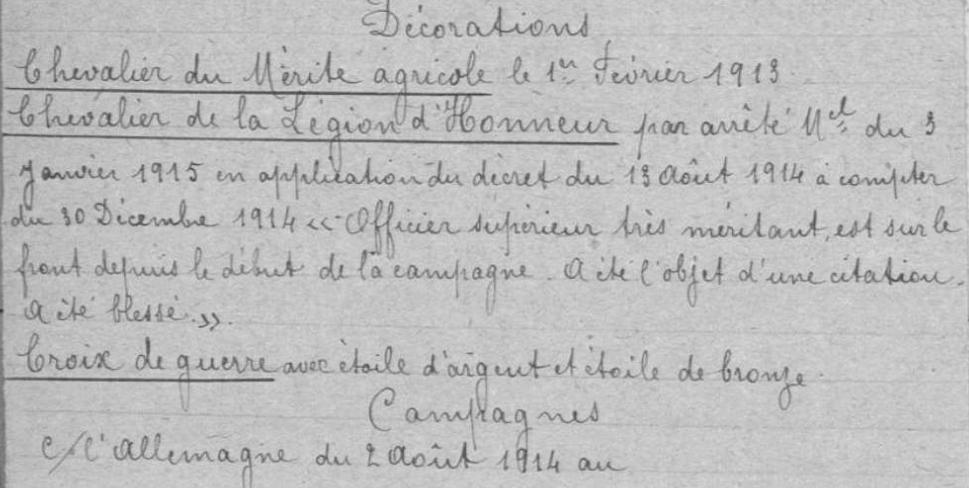 Décorations
Chevalier du Mérite agricole le 1er Février 1913
Chevalier de la Légion d'Honneur par arrêté Mel du 3
Janvier 1915 en application du décret du 13 Août 1914 à compter
du 30 Décembre 1914 << Officier supérieur très méritant, est sur le
front depuis le début de la campagne. A été l'objet d'une citation.
A été blessé. >>.
Croix de guerre avec étoile d'argent et étoile de bronze.
Campagnes
c/ l'Allemagne du 2 Août 1914 au